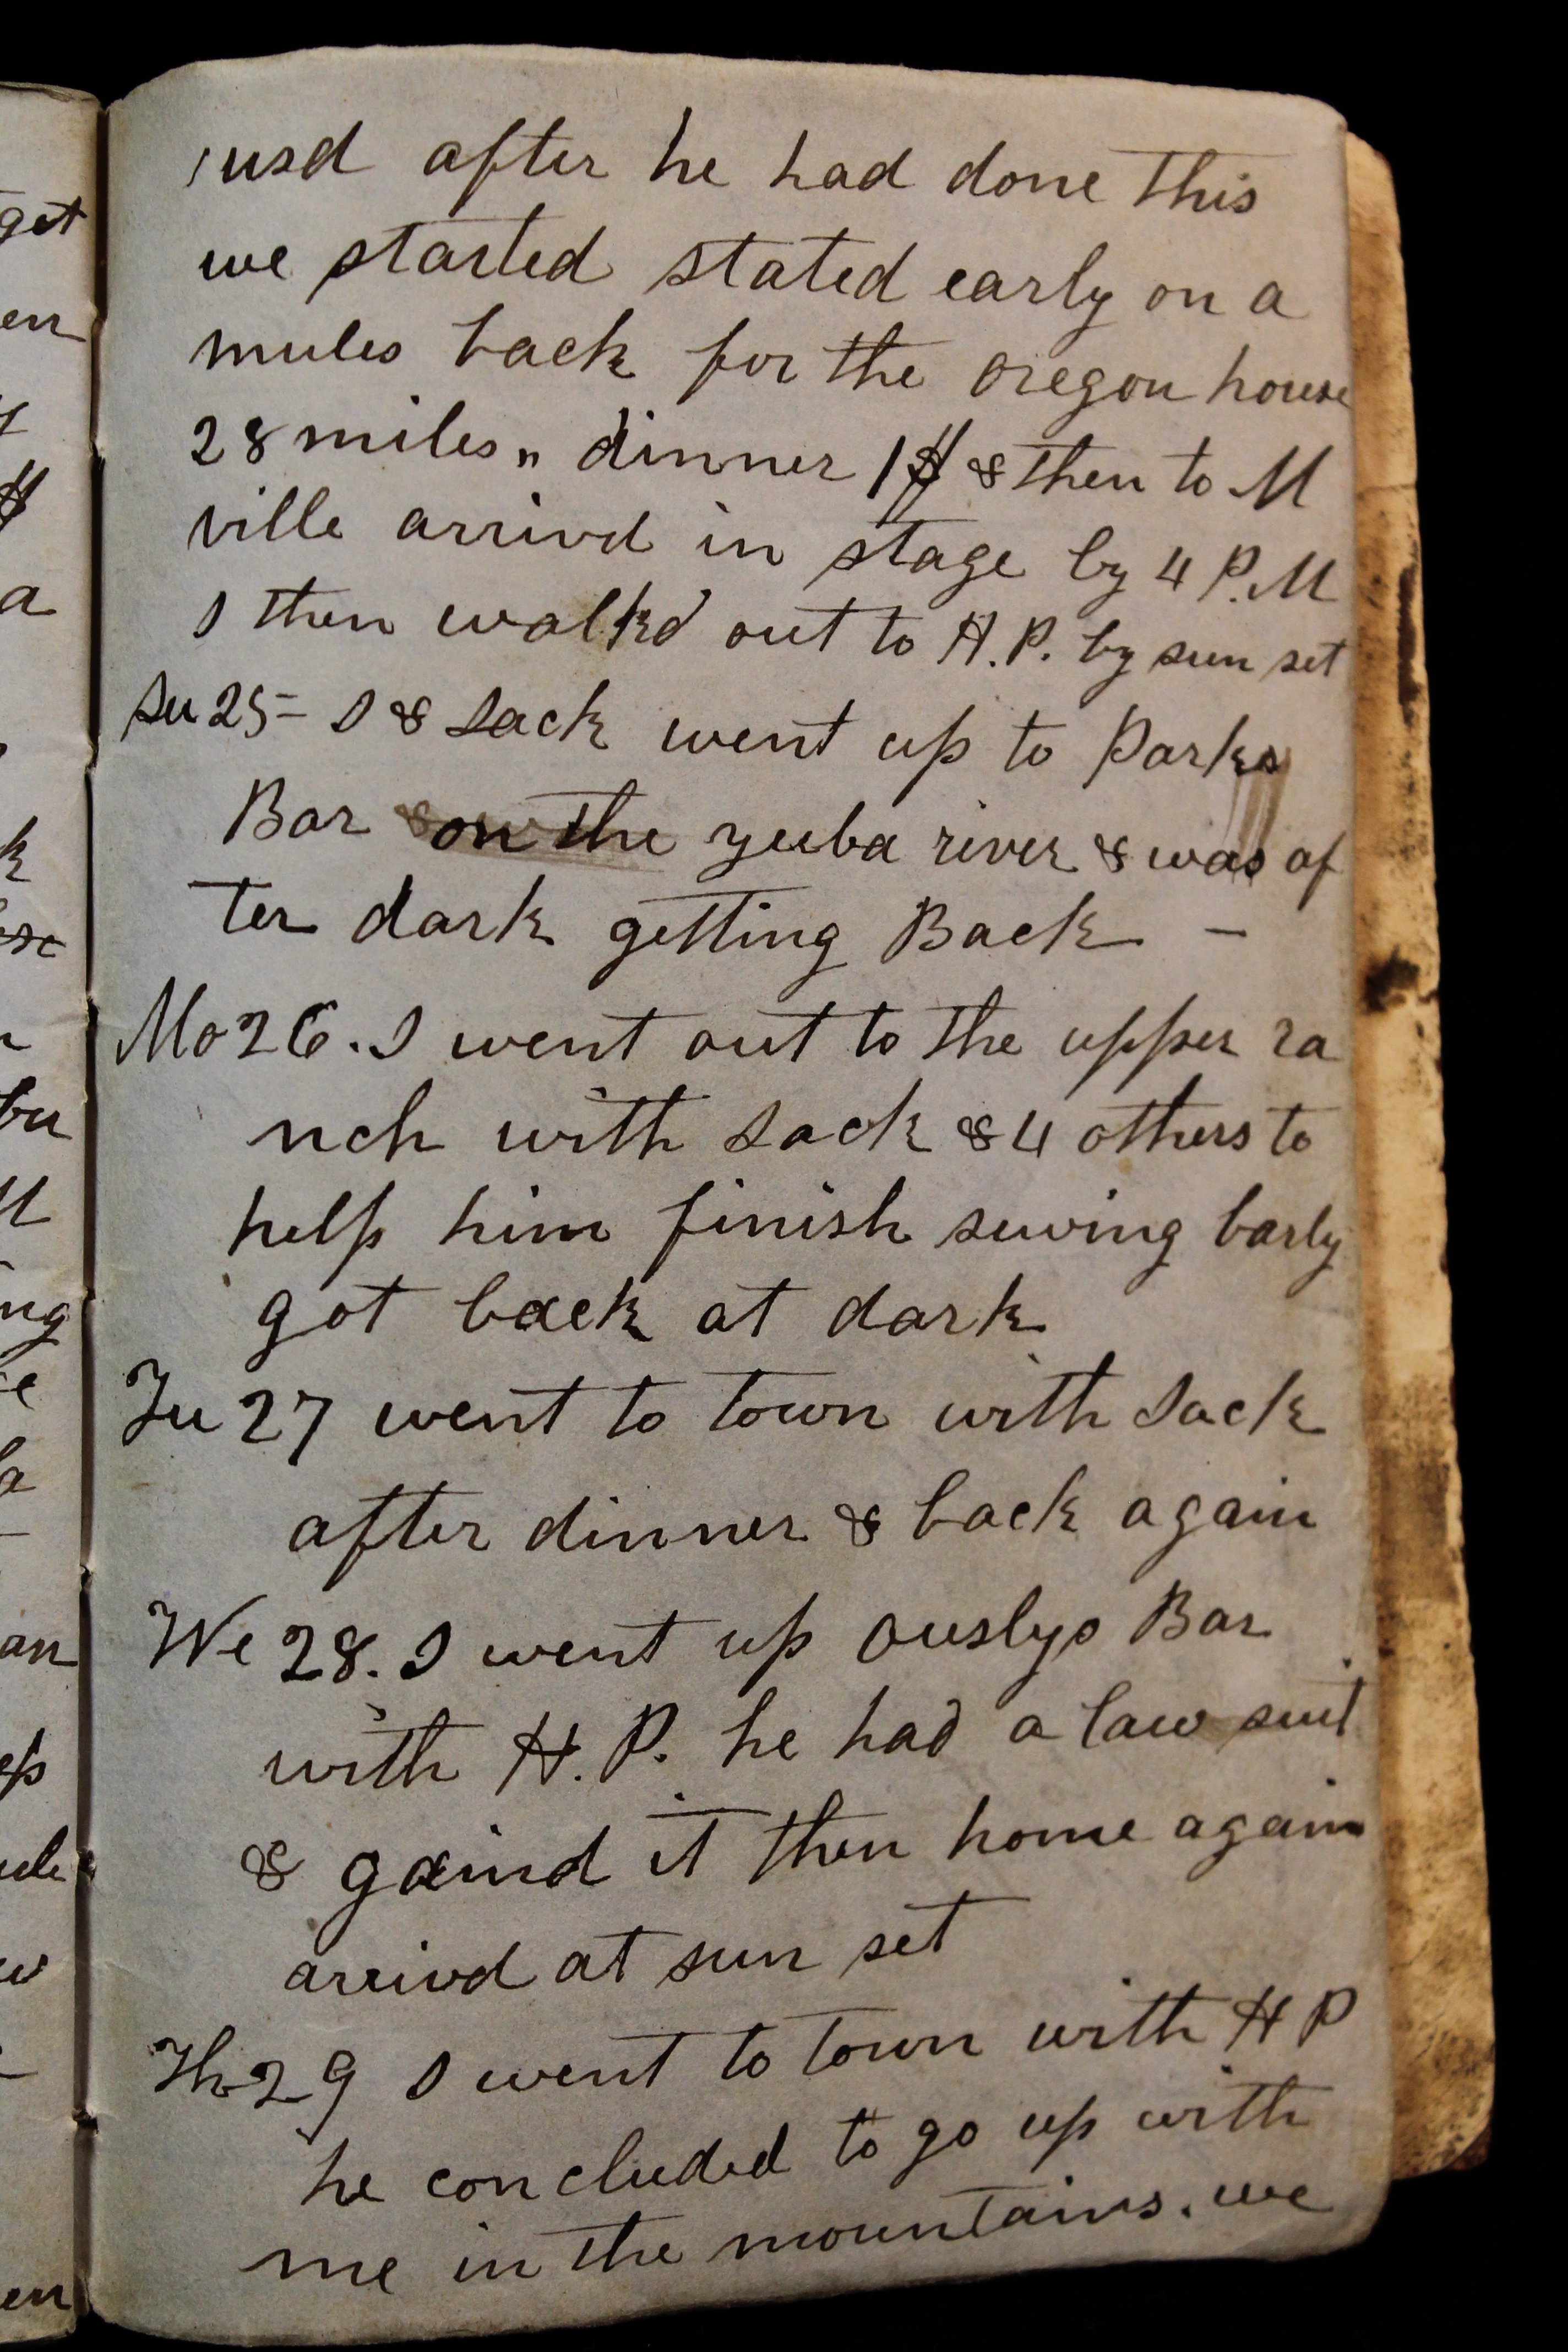 usd after he had done this
we started stated early on a
mules back for the oregon house
28 miles„ dinner 1$ & then to M
ville arrivd in stage by 4 P.M
I then walkd out to H.P. by sun set
Su 25 = I & Jack went up to Parks
Bar on the yuba river & was af
ter dark getting Back –
Mo 26. I went out to the upper ra
nch with Jack & 4 others to
help him finish sewing barly
got back at dark
Tu 27 went to town with Jack
after dinner & back again
We 28. I went up Ouslys Bar
with H.P. he had a law suit
& gaind it then home again
arrivd at sun set
Th 29 I went to town with H P
he concluded to go up with
me in the mountains. we